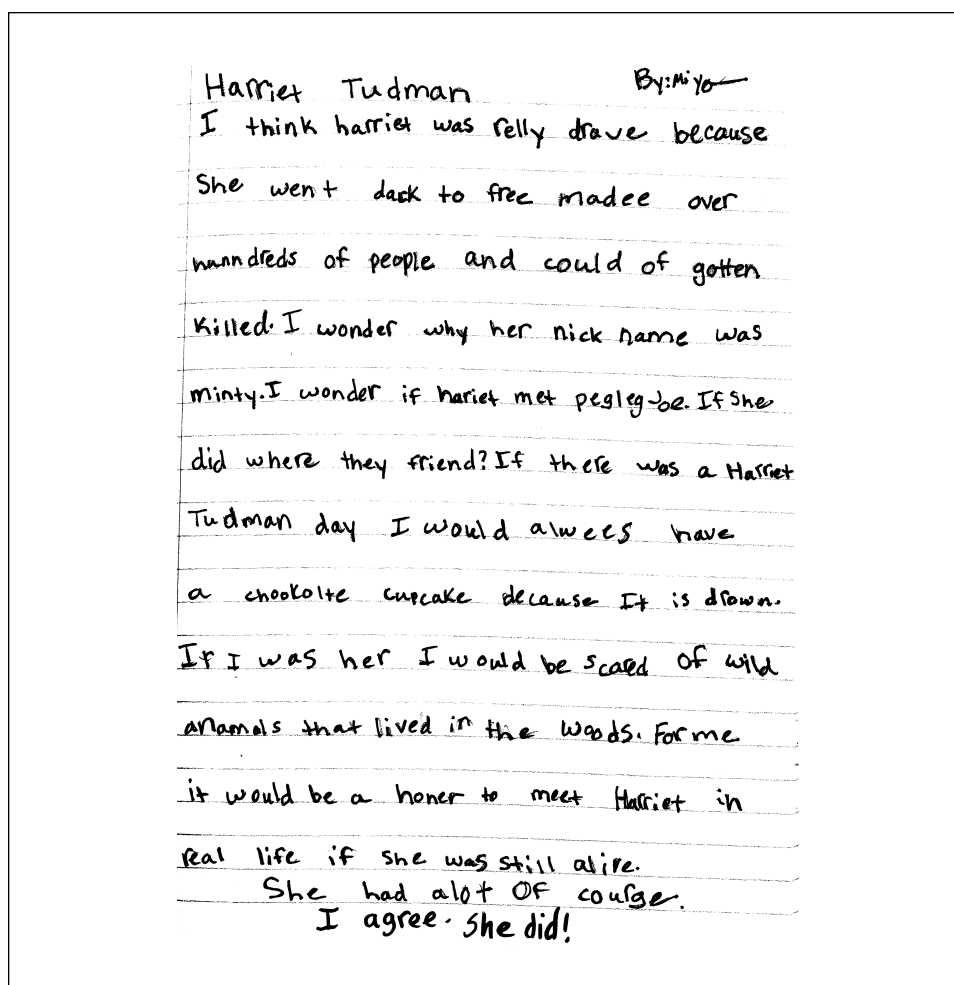 Harriet Tudman By: Miya
I think harriet was relly drave because
She went dack to free madee over
hunndreds of people and could of gotten
killed. I wonder why her nick name was
minty. I wonder if hariet met pegleg Joe. If she
did where they friend? If there was a Harriet
Tudman day I would alwees have
a chookolte cupcake decause It is drown.
If I was her I would be scaed of wild
anamals that lived in the woods. For me
it would be a honer to meet Harriet in
real life if she was still alive.
She had alot OF courge.
I agree. She did!